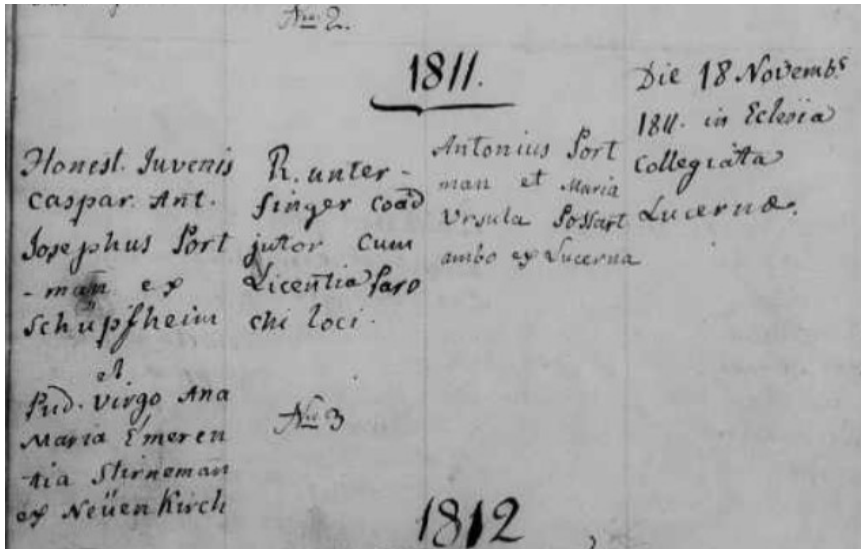 Nro 2.
1811.
Honest. Juvenis
Caspar. Ant.
Josephus Port
-man ex
Schüpfheim
et
Pud. Virgo Ana
Maria Emeren
tia Stirneman
ex Neüenkirch
R. unter-
singer coad
jutor cum
Licentia Paro
chi loci.
Nro 3
Antonius Port
man et Maria
Ursula Possart
ambo ex Lucerna
Die 18 Novembs
1811. in Eclesia
Collegiatta
Lucernæ.
1812